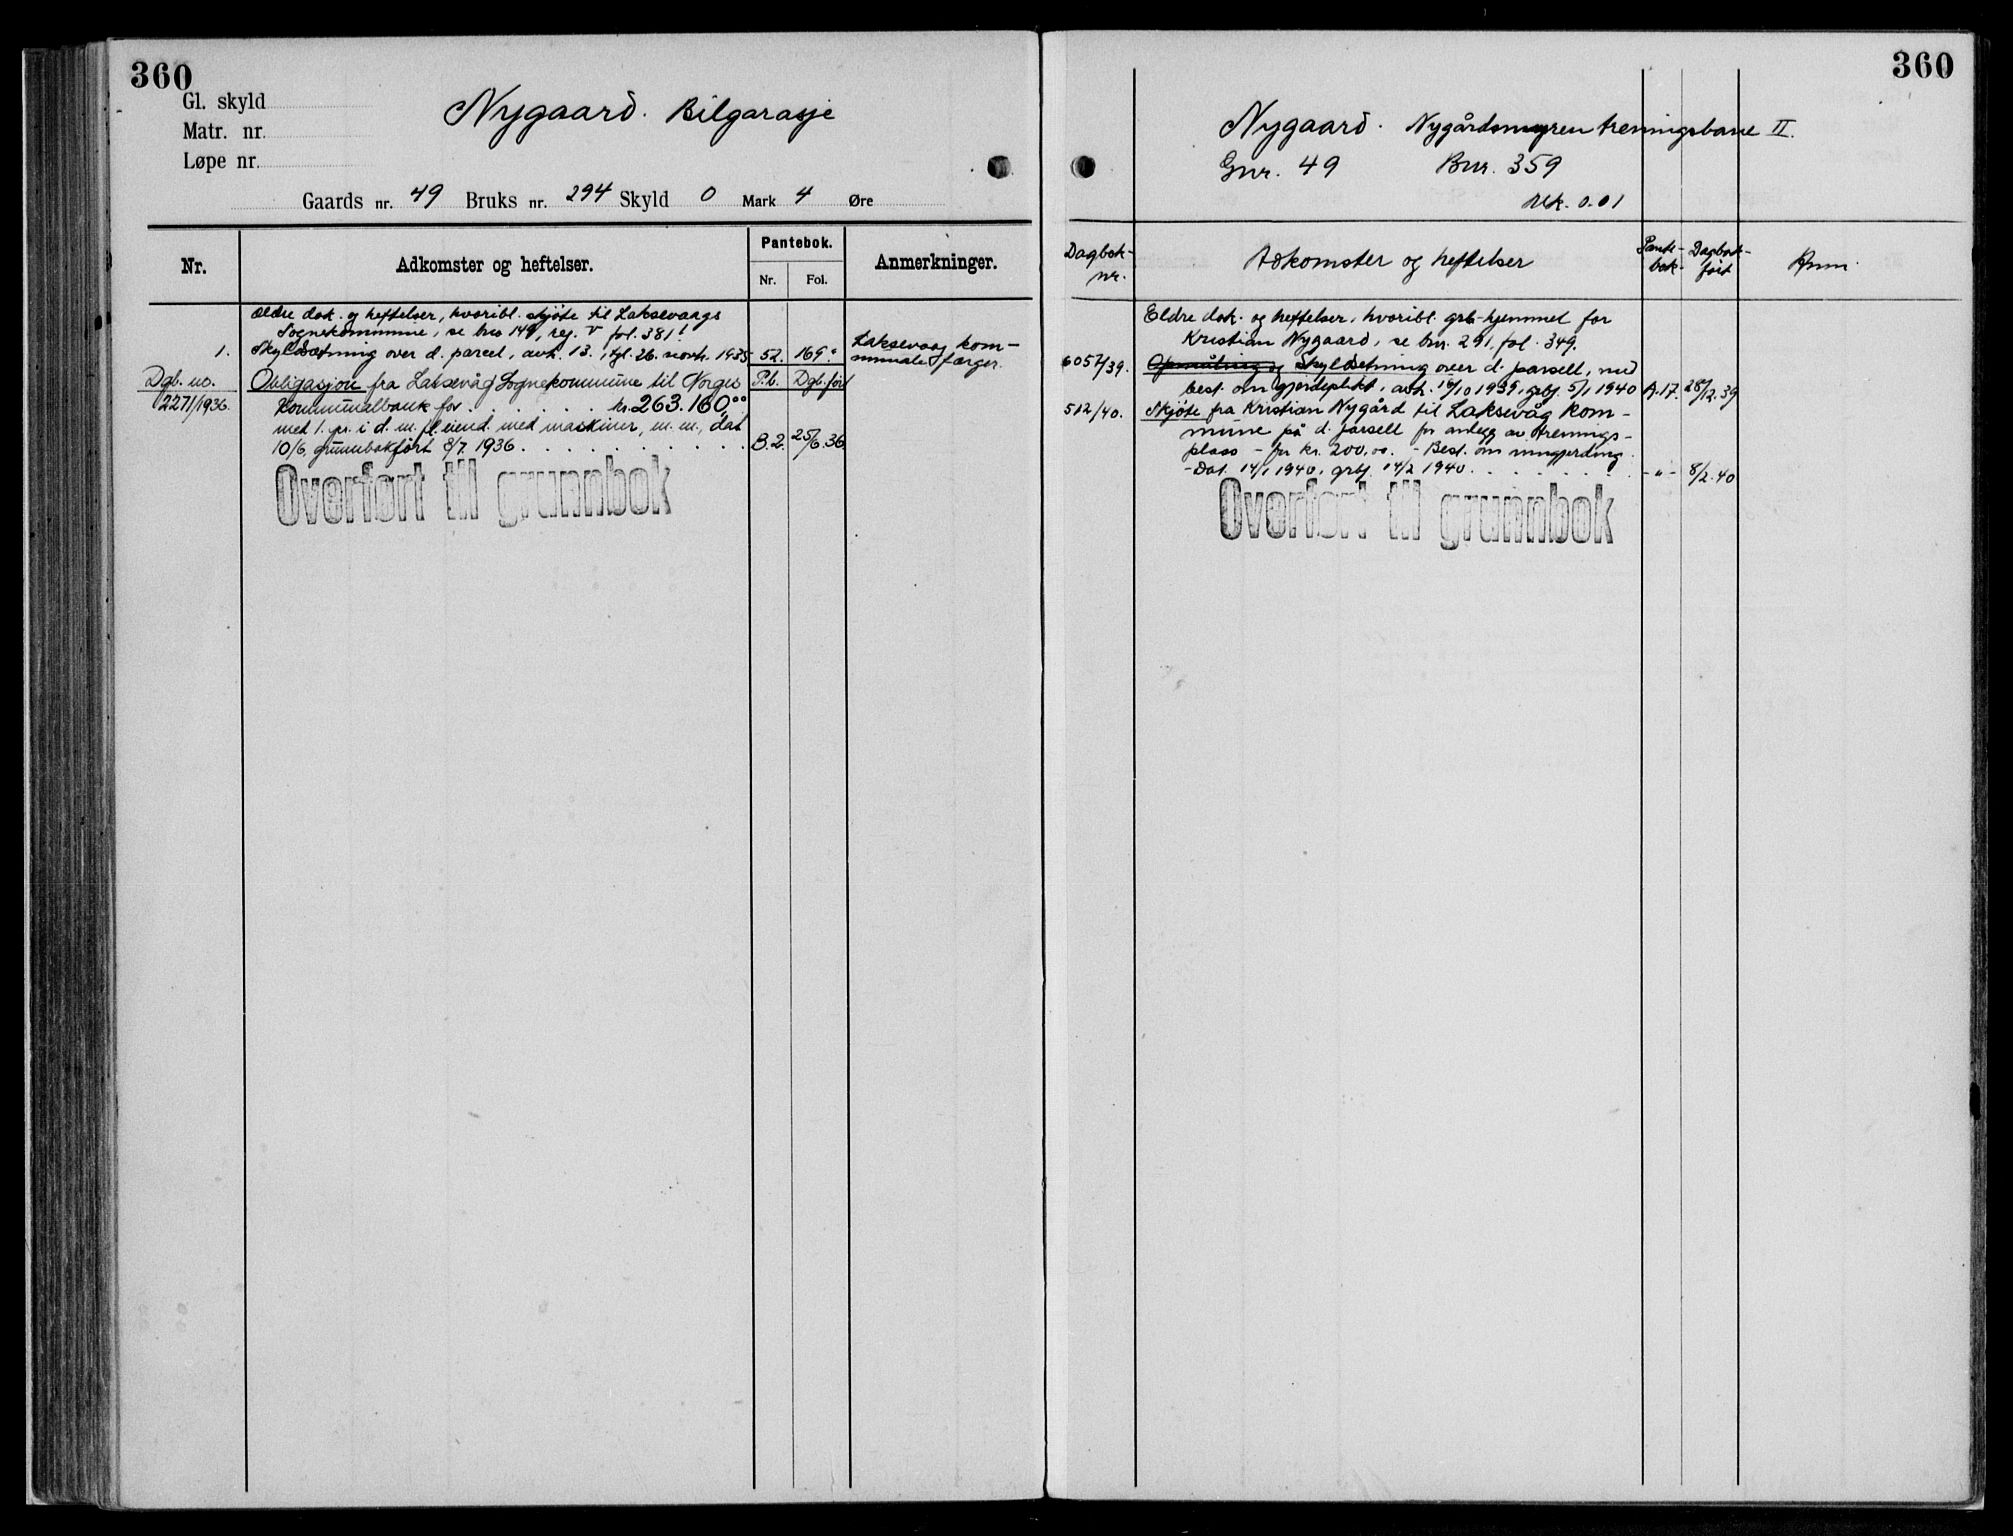 360
Gl. skyld
Matr. nr.
Løpe nr.
Nygaard. Bilgarasje
Gaards nr. 49 Bruks nr. 294 Skyld 0 Mark 4 Øre
Nr.
Adkomster og heftelser.
Pantebok.
Nr. Fol.
Anmerkninger.
ældre dok. og heftelser, hvoribl. skjøte til Laksevaags
Sognekommune, se bno 149, reg. V fol. 381!
1. Skyldsætning over d. parcel, avh. 13., tgl. 26. novbr. 1935 52. 169.
Laksevaag kom-
munale færger.
Dgb. no. Obligasjon fra Laksevåg Sognekommune til Norges P.b. Dgb.ført
2271/1936. Kommunalbank for . . . . . . kr. 263.160,00
med 1. pr. i d. m. fl. eiend. med maskiner, m. m., dat.
10/6, grunnbokført 8/7. 1936 . . . . . . . . B.2. 25/6.36
Overført til grunnbok
360
Nygaard. Nygårdsmyren treningsbane II.
Gnr. 49 Bnr. 359
Mk. 0.01
Dagbok-
nr.
Adkomster og heftelser
Pante-
bok.
Dagbok-
ført
Anm.
Eldre dok. og heftelser, hvoribl. grb-hjemmel for
Kristian Nygaard, se bnr. 291, fol. 349.
6057/39. Opmåling og Skyldsetning over d. parsell, med
best. om gjerdeplikt, avh. 16/10 1939, grbf. 5/1 1940 A.17. 28/12.39
512/40. Skjøte fra Kristian Nygård til Laksevåg kom-
mune på d. parsell for anlegg av trenings-
plass - for kr. 200,00. - Best. om inngjerding.
- Dat. 14/1 1940, grbf. 14/2 1940 . . . . . . -"- 8/2.40
Overført til grunnbok